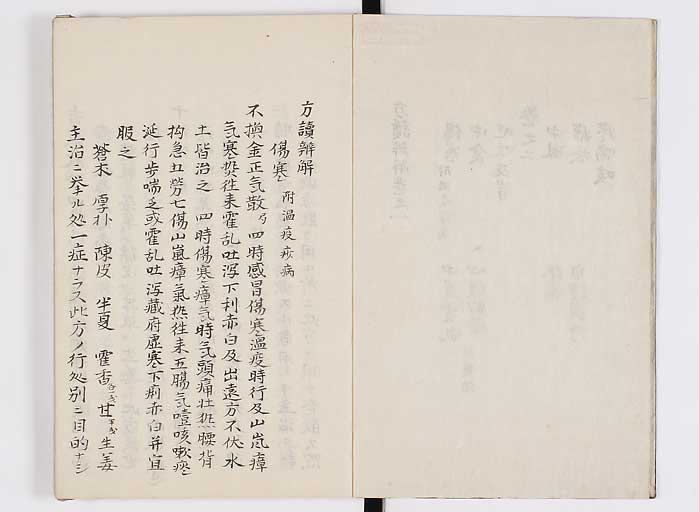 方讀辨解
傷寒 附温疫疫病
不換金正気散 四時感冒傷寒温疫時行及山嵐瘴
気寒熱徃来霍乱吐瀉下利赤白及出遠方不伏水
土皆治之 四時傷寒瘴気時気頭痛壮熱腰背
拘急五労七傷山嵐瘴氣熱徃来五膈気噎咳嗽痰
涎行歩喘乏或霍乱吐瀉藏府虚寒下痢赤白并宜
服之
蒼朮 厚朴 陳皮 半夏 霍香 甘 生姜
主治ニ挙ル処一症ナラス此方ノ行処別ニ目的ナシ